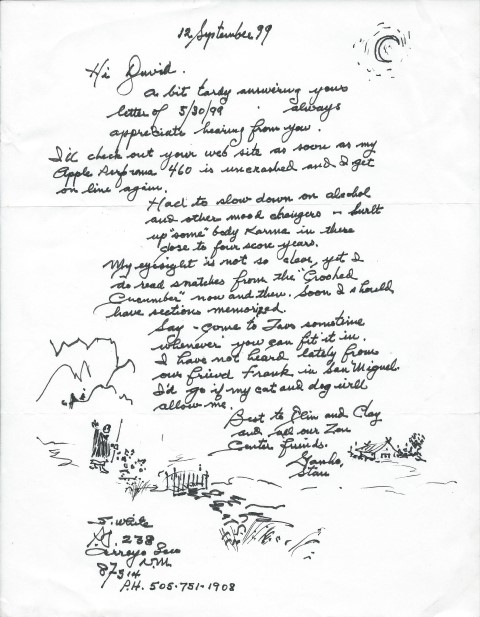 12 September 99
Hi David.
A bit tardy answering your
letter of 5/30/99 . always
appreciate hearing from you.
I'll check out your web site as soon as my
Apple Performa 460 is uncrashed and I get
on line again.
Had to slow down on alcohol
and other mood changers – built
up "some" body Karma in these
close to four score years.
My eyesight is not so clear, yet I
do read snatches from the "Crooked
Cucumber" now and then. Soon I should
have sections memorized.
Say – come to Taos sometime
whenever you can fit it in.
I have not heard lately from
our friend Frank in San Miguel.
I'd go if my cat and dog will
allow me.
Best to Elin and Clay
and all our Zen
Center friends.
Stan
S. White
238
Arroyo Seco
N.M.
87514
P.H. 505-751-1908